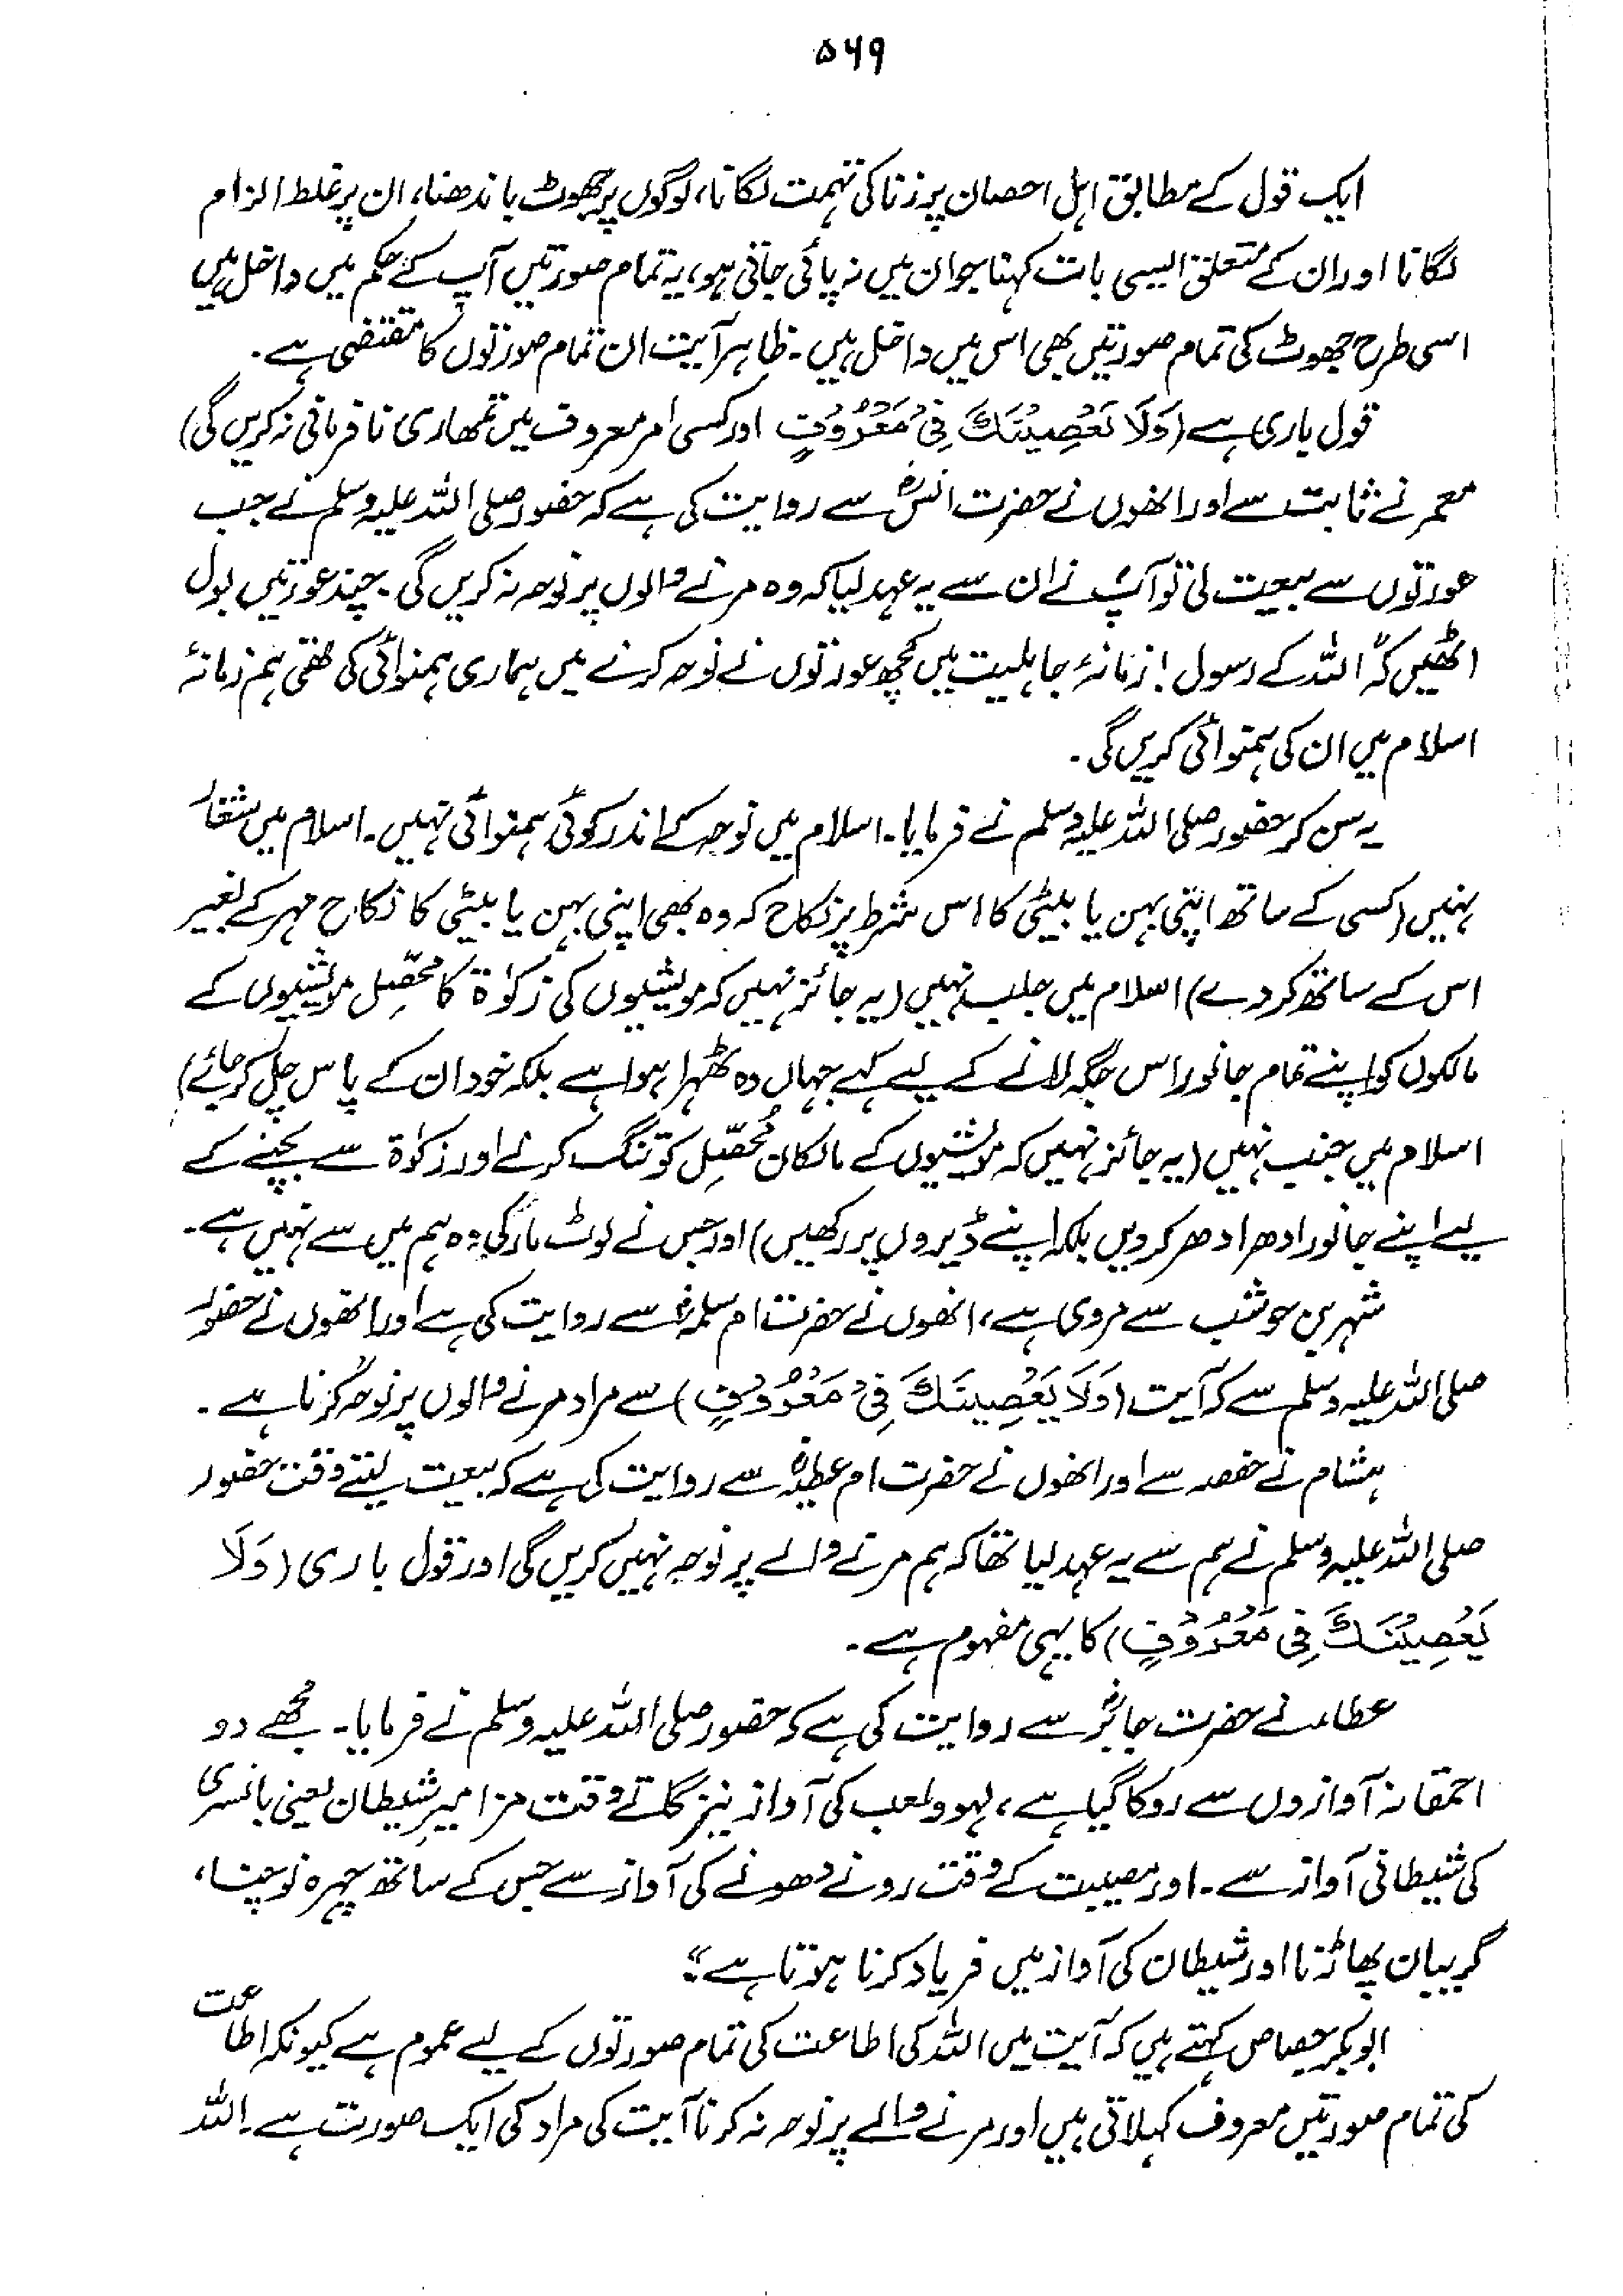 ۵۶۹
ایک قول کے مطابق اہل احصان پر زنا کی تہمت لگانا، لوگوں پر جھوٹ باندھنا، ان پر غلط الزام
لگانا اور ان کے متعلق ایسی بات کہنا جو ان میں نہ پائی جاتی ہو، یہ تمام صورتیں آپ کے حکم میں داخل ہیں
اسی طرح جھوٹ کی تمام صورتیں بھی اس میں داخل ہیں۔ ظاہر آیت ان تمام صورتوں کا مقتضی ہے۔
قول باری ہے (وَلَا يَعْصِيْنَكَ فِيْ مَعْرُوْفٍ اور کسی امر معروف میں تمھاری نافرمانی نہ کریں گی)
معمر نے ثابت سے اور انھوں نے حضرت انسؓ سے روایت کی ہے کہ حضور صلی اللہ علیہ وسلم نے جب
عورتوں سے بیعت لی تو آپؐ نے ان سے یہ عہد لیا کہ وہ مرنے والوں پر نوحہ نہ کریں گی۔ چند عورتیں بول
اٹھیں کہ اللہ کے رسول! زمانۂ جاہلیت میں کچھ عورتوں نے نوحہ کرنے میں ہماری ہمنوائی کی تھی ہم زمانۂ
اسلام میں ان کی ہمنوائی کریں گی۔
یہ سن کر حضور صلی اللہ علیہ وسلم نے فرمایا۔ اسلام میں نوحہ کے اندر کوئی ہمنوائی نہیں۔ اسلام میں شغار
نہیں (کسی کے ساتھ اپنی بہن یا بیٹی کا اس شرط پر نکاح کہ وہ بھی اپنی بہن یا بیٹی کا نکاح مہر کے بغیر
اس کے ساتھ کر دے) اسلام میں جلب نہیں (یہ جائز نہیں کہ مویشیوں کی زکوٰۃ کا محصِّل مویشیوں کے
مالکوں کو اپنے تمام جانور اس جگہ لانے کے لیے کہے جہاں وہ ٹھہرا ہوا ہے بلکہ خود ان کے پاس چل کر جائے)
اسلام میں جنب نہیں (یہ جائز نہیں کہ مویشیوں کے مالکان مُحصِّل کو تنگ کرنے اور زکوٰۃ سے بچنے کے
لیے اپنے جانور ادھر ادھر کر دیں بلکہ اپنے ڈیروں پر رکھیں) اور جس نے لوٹ مار کی وہ ہم میں سے نہیں ہے۔
شہر بن حوشب سے مروی ہے، انھوں نے حضرت ام سلمہؓ سے روایت کی ہے اور انھوں نے حضور
صلی اللہ علیہ وسلم سے کہ آیت (وَلَا يَعْصِينَكَ فِيْ مَعْرُوْفٍ) سے مراد مرنے والوں پر نوحہ کرنا ہے۔
ہشام نے حفصہ سے اور انھوں نے حضرت ام عطیہؓ سے روایت کی ہے کہ بیعت لیتے وقت حضور
صلی اللہ علیہ وسلم نے ہم سے یہ عہد لیا تھا کہ ہم مرنے والے پر نوحہ نہیں کریں گی اور قول باری (وَلَا
يَعْصِيْنَكَ فِيْ مَعْرُوْفٍ) کا یہی مفہوم ہے۔
عطاء نے حضرت جابرؓ سے روایت کی ہے کہ حضور صلی اللہ علیہ وسلم نے فرمایا۔ مجھے دو
احمقانہ آوازوں سے روکا گیا ہے، لہو و لعب کی آواز نیز گاتے وقت مزامیرِ شیطان یعنی بانسری
کی شیطانی آواز سے۔ اور مصیبت کے وقت رونے دھونے کی آواز سے جس کے ساتھ چہرہ نوچنا،
گریبان پھاڑنا اور شیطان کی آواز میں فریاد کرنا ہوتا ہے"
ابو بکر جصاص کہتے ہیں کہ آیت میں اللہ کی اطاعت کی تمام صورتوں کے لیے عموم ہے کیونکہ اطاعت
کی تمام صورتیں معروف کہلاتی ہیں اور مرنے والے پر نوحہ نہ کرنا آیت کی مراد کی ایک صورت ہے۔ اللہ